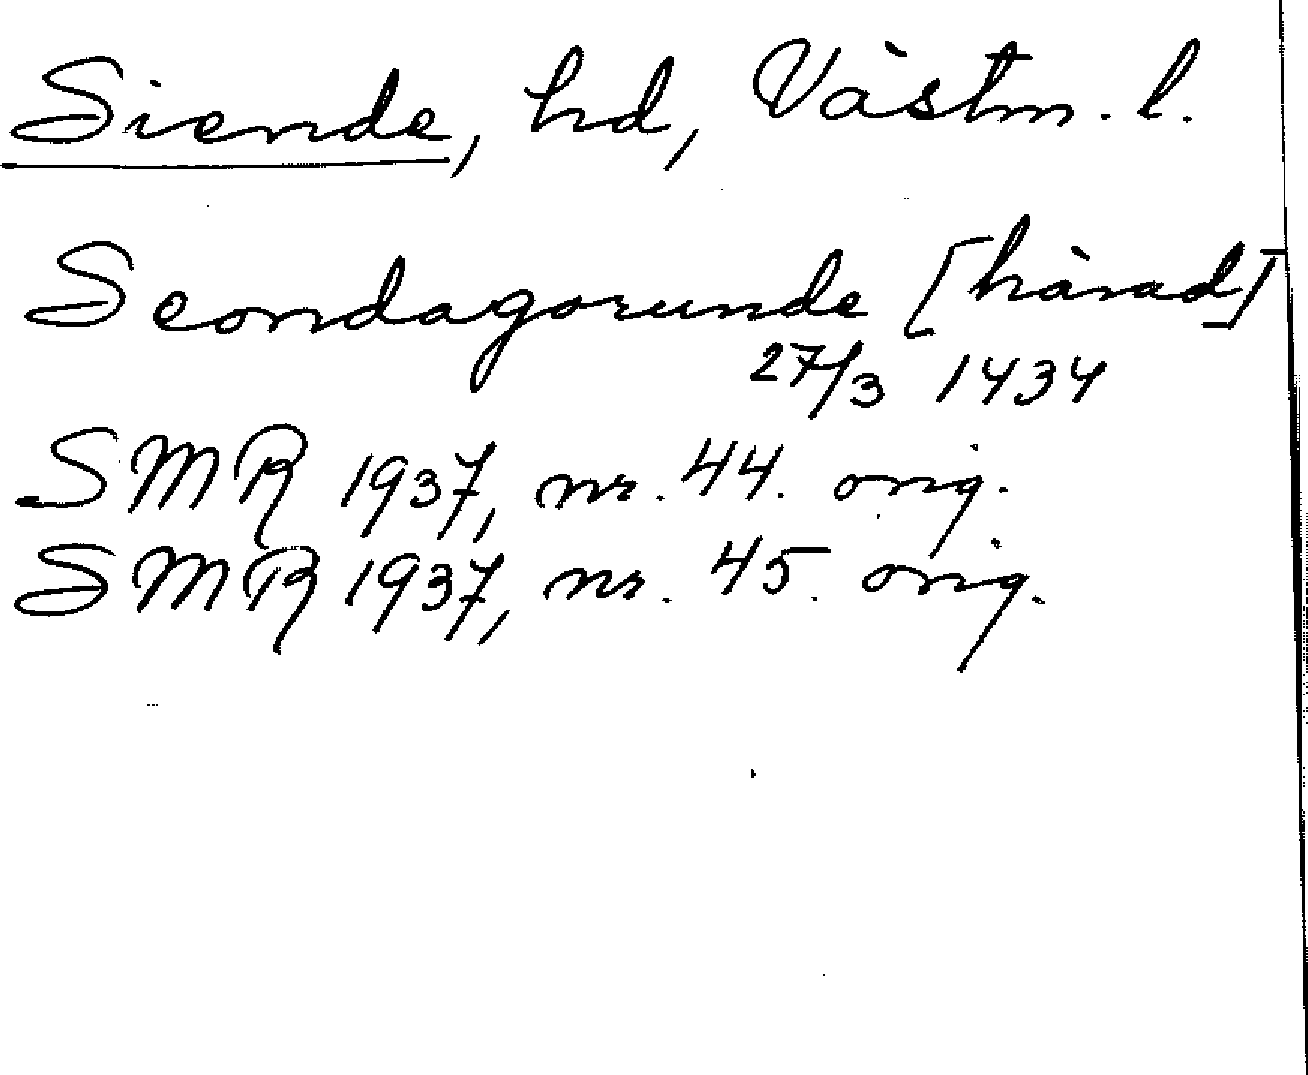 Siende, hd, Västm. l.
Seondagorunde [härad]
27/3 1434
SMR 1937, nr. 44. orig.
SMR 1937, nr. 45. orig.